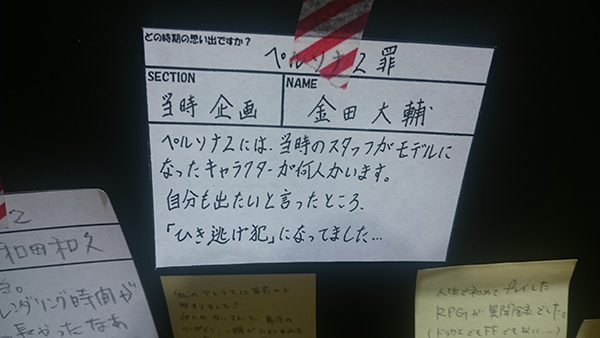 どの時期の思い出ですか?
ペルソナ2 罪
SECTION
NAME
当時 企画
金田大輔
ペルソナ2には、当時のスタッフがモデルに
なったキャラクターが何人かいます。
自分も出たいと言ったところ、
「ひき逃げ犯」になってました…
2
和田和久
る。
レンダリング時間が
長かったなあ
人生で初めてプレイした
RPGが異聞録でした。
(ドラクエでもFFでもない…)